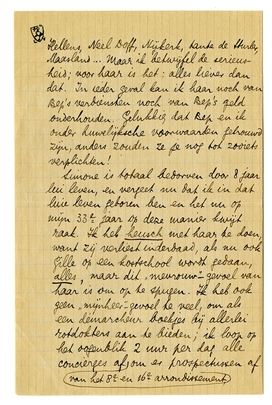 Hellens, Neel Doff, Nijkerk, tante de Hurler,
Maasland... Maar ik betwijfel de serieus-
heid; voor haar is het: alles liever dan
dat. In ieder geval kan ik haar noch van
Bep's verdiensten noch van Bep's geld
onderhouden. Gelukkig dat Bep en ik
onder huwelijksche voorwaarden getrouwd
zijn, anders zouden ze je nog tot zooiets
verplichten!
Simone is totaal bedorven door 8 jaar
lui leven, en vergeet nu dat ik in dat
luie leven geboren ben en het nu op
mijn 33ste jaar op deze manier kwijt
raak. Ik heb heusch met haar te doen,
want zij verliest inderdaad, als nu ook
Gille op een kostschool wordt gedaan,
alles, maar dit „mevrouw"-gevoel van
haar is om op te spugen. Ik heb ook
geen „mijnheer"-gevoel te veel, om als
een démarcheur boekjes bij allerlei
rotdokters aan te bieden; ik loop op
het oogenblik 2 uur per dag alle
concierges af om es prospectussen af
(van het 8e en 16e arrondissement)